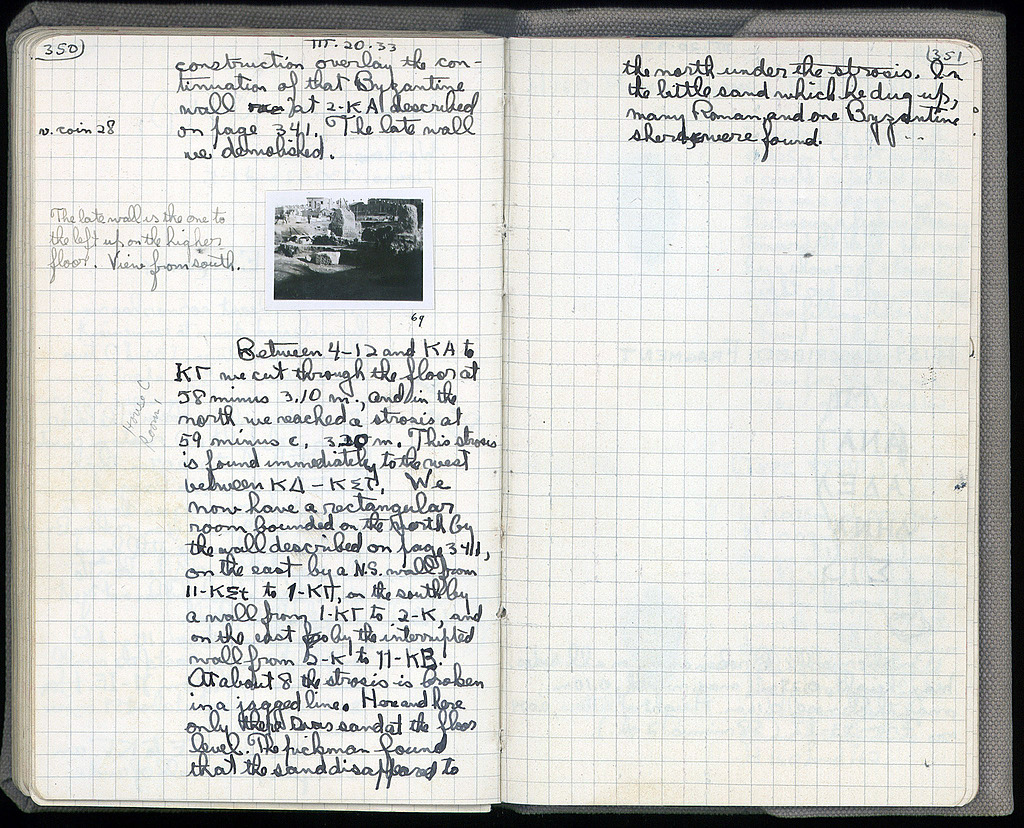 350
III.20.33
construction overlay the con-
tinuation of that Byzantine
wall at 2-KA described
on page 341. The late wall
we demolished.
v. coin 28
The late wall is the one to
the left up on the higher
floor. View from south.
69
Between 4-12 and KA to
KΓ we cut through the floor at
58 minus 3.10 m., and in the
north we reached a strosis at
59 minus c. 3.20 m. This strosis
is found immediately to the west
between KΔ-KΣΤ. We
now have a rectangular
room bounded on the north by
the wall described on page 341,
on the east by a N.S. wall from
to on the south by
a wall from 1-KΓ to 2-K, and
on the east by the interrupted
wall from 5-K to 11-KB.
At about 8 the strosis is broken
in a jagged line. Here and here
only there was sand at the floor
level. The pickman found
that the sand disappeared to
House C
Room 1
351
the north under the strosis. In
the little sand which he dug up,
many Roman and one Byzantine
sherds were found.